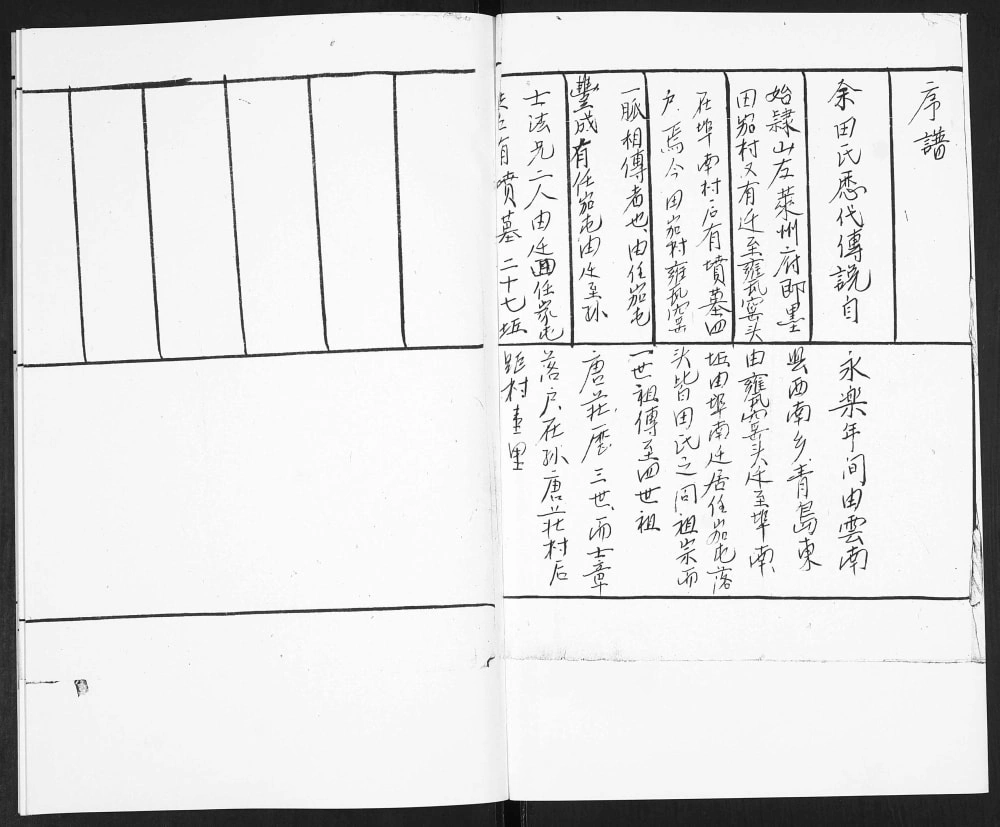 序譜
余田氏歷代傳説自永楽年間由雲南
始隸山左萊州府即墨县西南乡青島東
田家村又有迁至雍瓦窑头由雍瓦窑头迁至埠南
在埠南村后有墳墓四坵由埠南迁居任家屯落
户焉今田家村雍瓦窑头皆田氏之同祖宗而
一脈相傳者也由任家屯一世祖傳至四世祖
豐成有任家屯由迁至孙唐莊歷三世而士章
士法兄二人由迁任家屯落户在孙唐莊村后
有墳墓二十七坵距村壹里